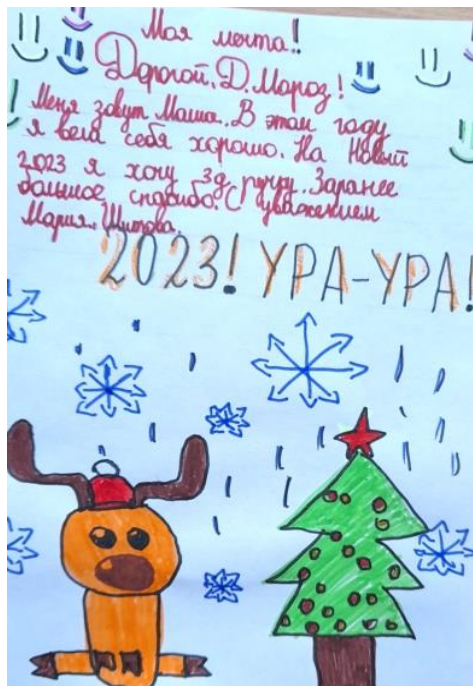 Моя мечта!
Дорогой. Д. Мороз!
Меня зовут Маша. В этом году
я вела себя хорошо. На Новый
2023 я хочу 3д ручку. Заранее
большое спасибо. С уважением
Мария.
2023! УРА-УРА!